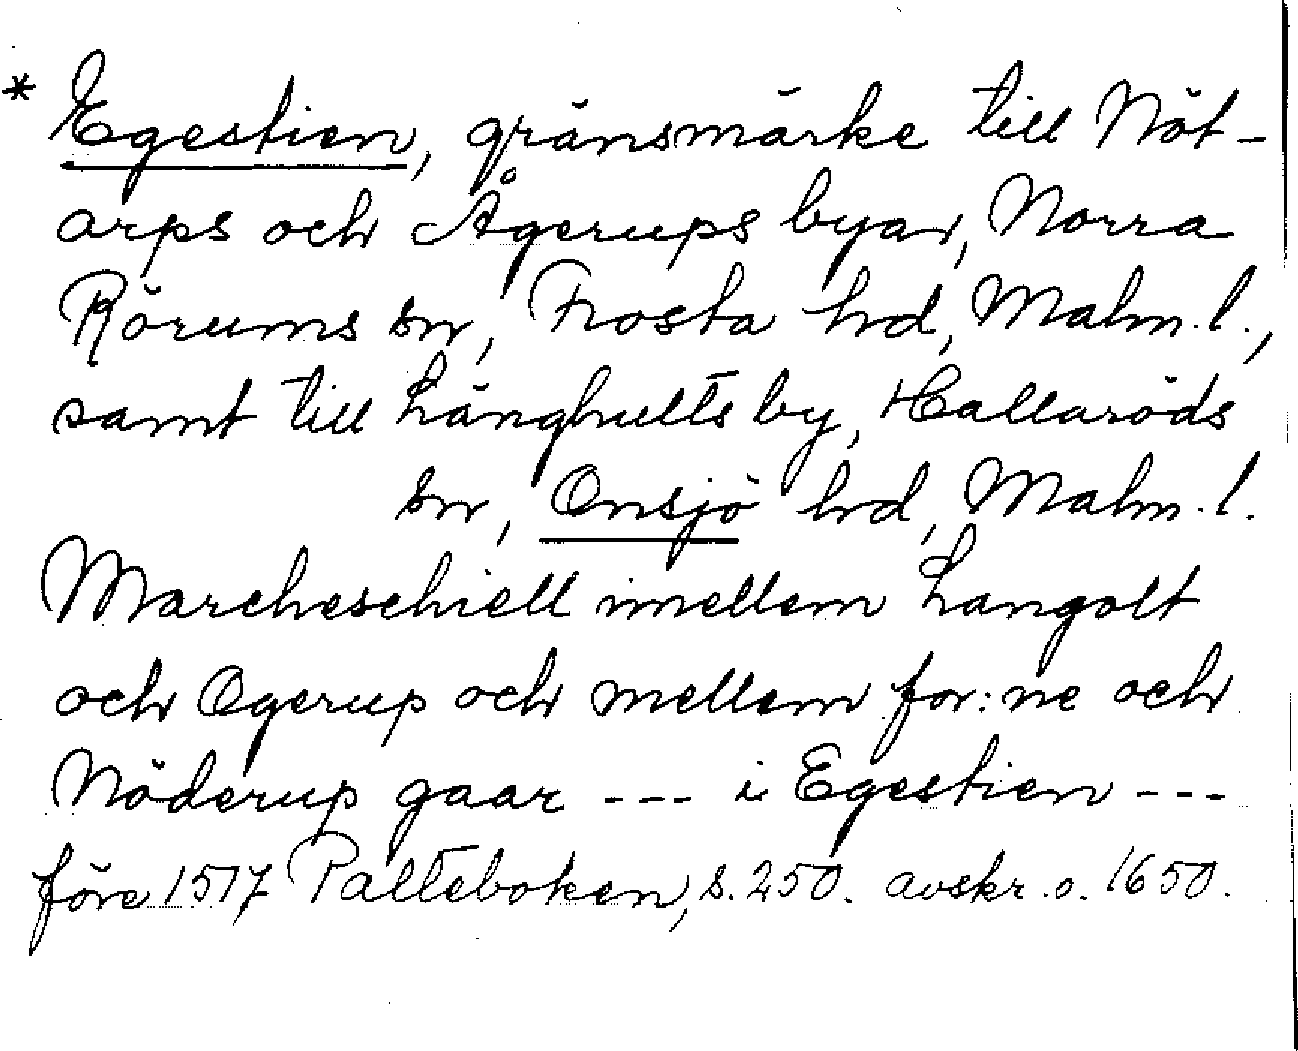 * Egestien, gränsmärke till Nöt-
arps och Ågerups byar, Norra
Rörums sn, Frosta hd, Malm. l.,
samt till Långhults by, Hallaröds
sn, Onsjö hd, Malm. l.
Marcheschiell imellem Langolt
och Ogerup och mellem for:ne och
Nöderup gaar --- i Egestien ---
före 1517 Palteboken, s. 250. avskr. o. 1650.